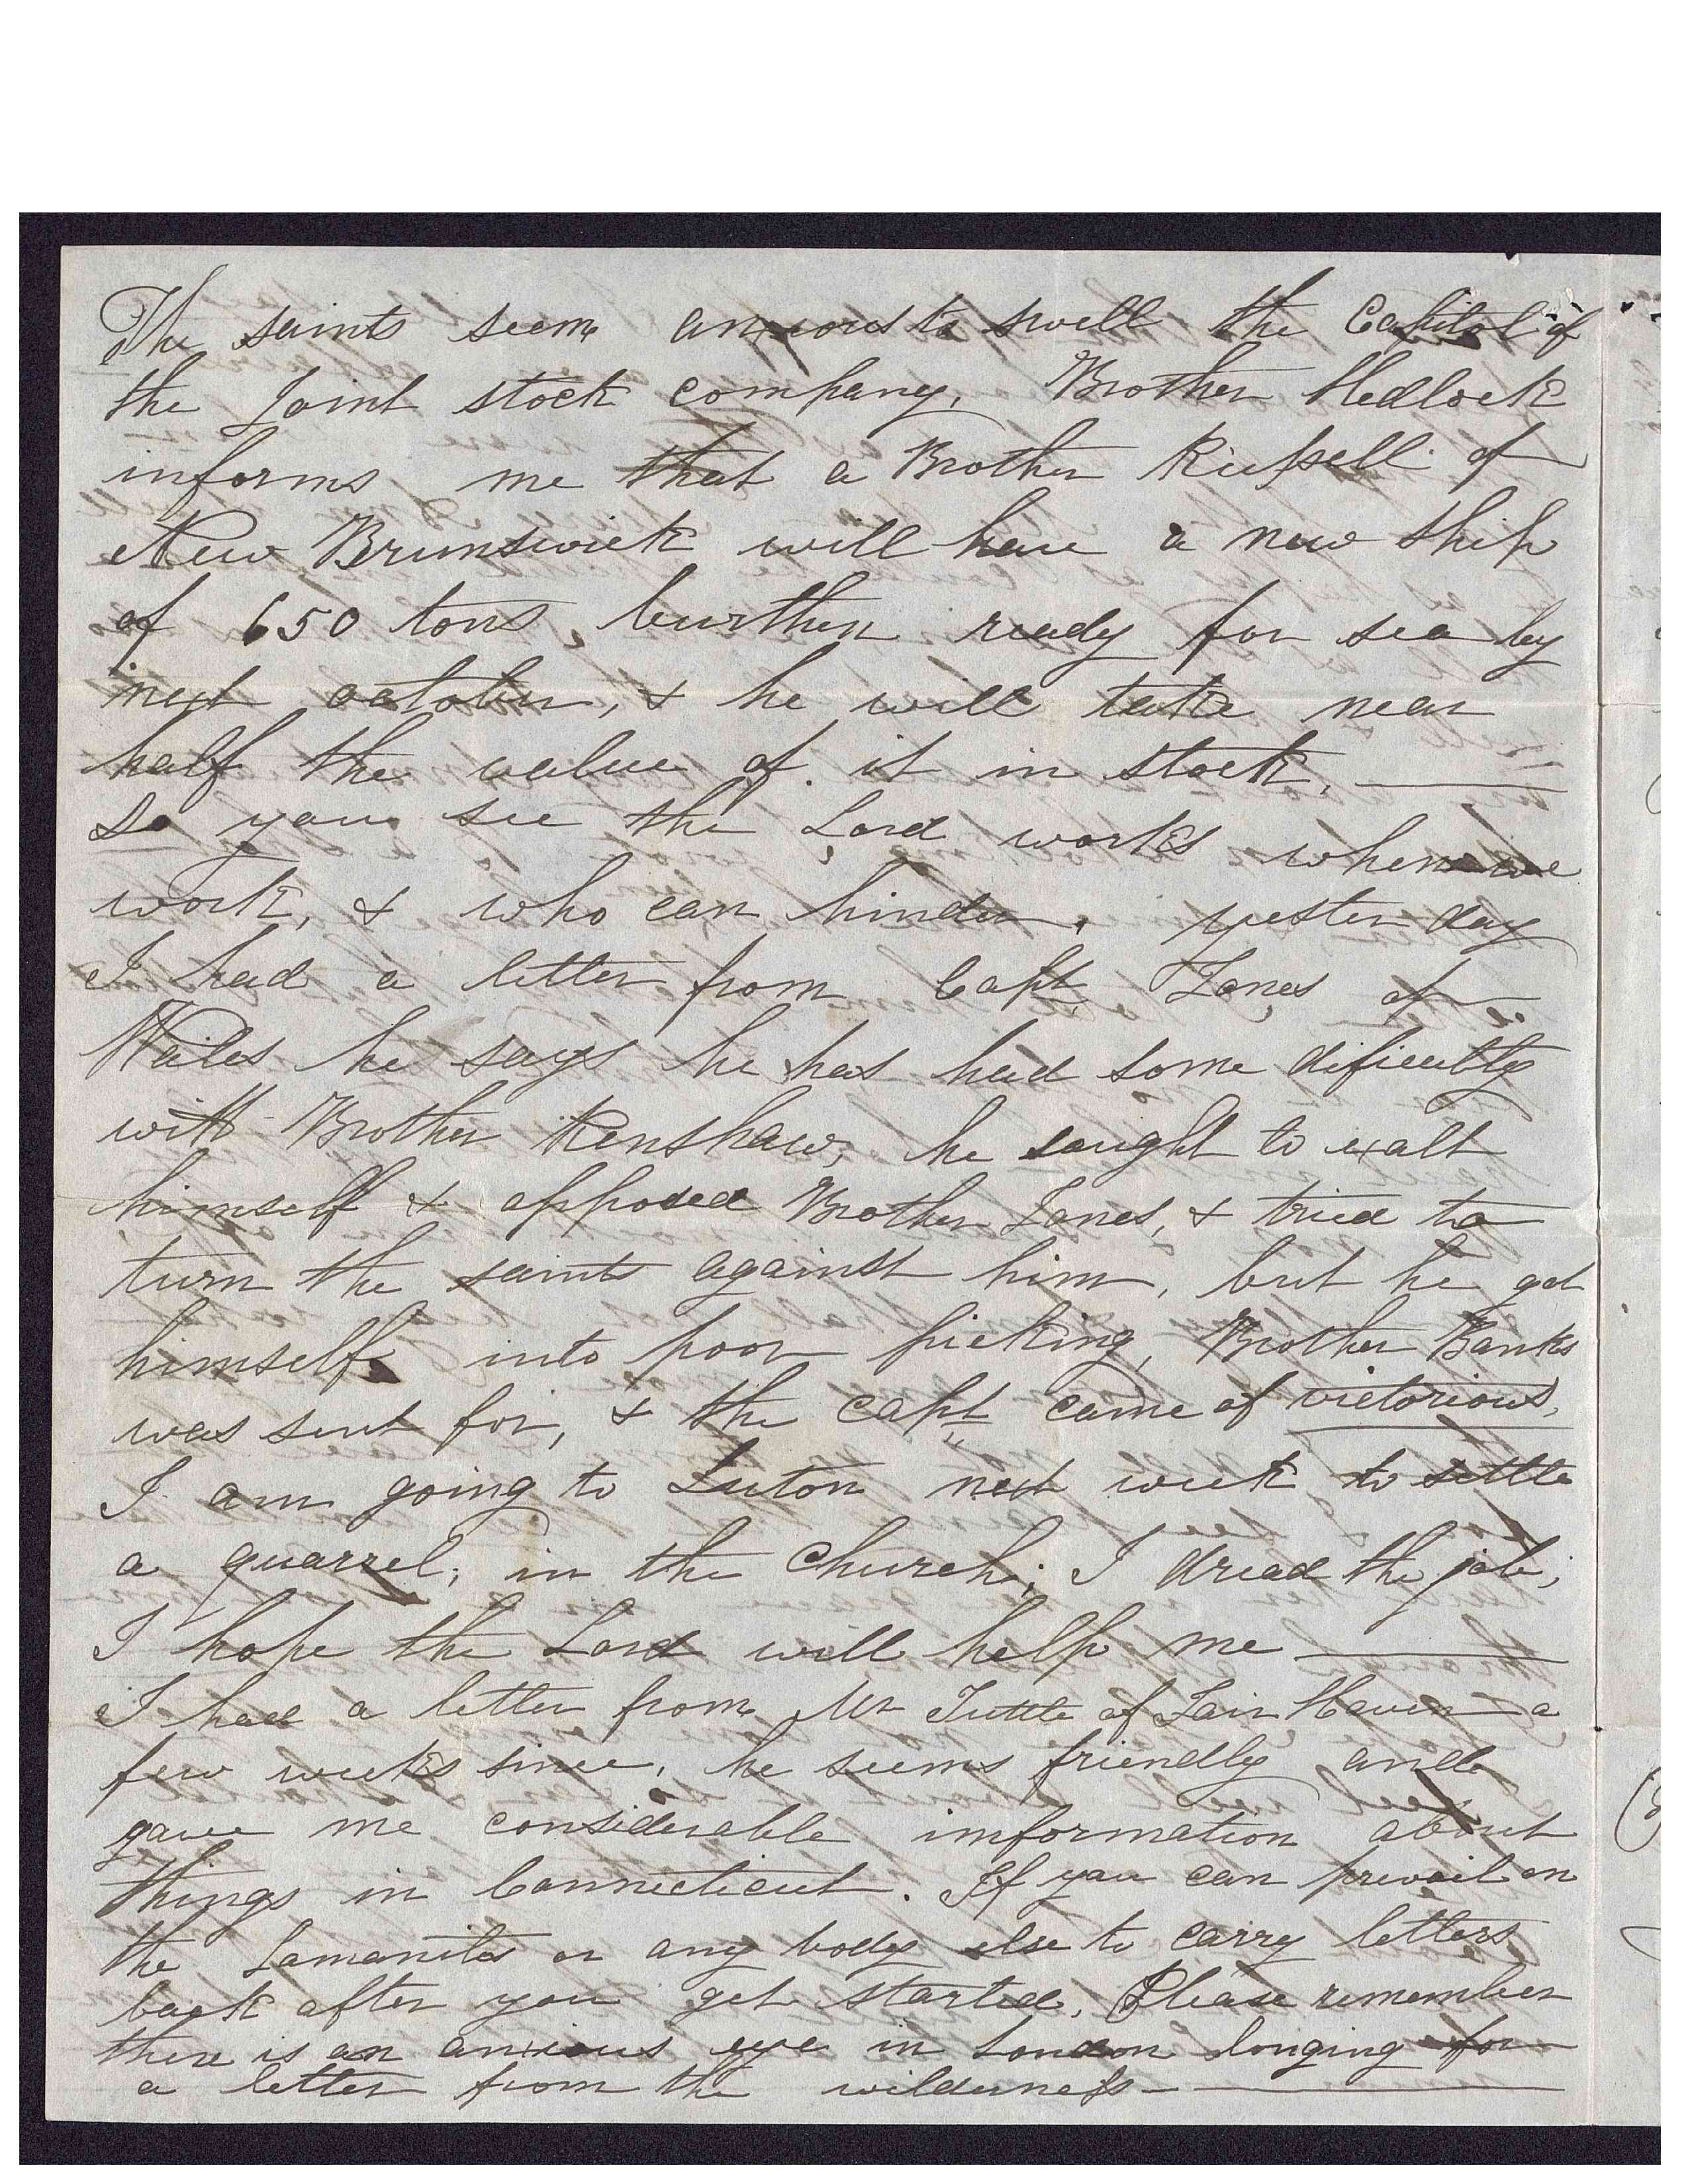 The saints seem anxious to swell the Capitol of
the Joint stock company, Brother Hedlock
informs me that a Brother Russell of
New Brunswick will have a new ship
of 650 tons, burthen ready for sea by
next october, & he will take near
half the value of it in stock,
So you see the Lord works when we
work, & who can hinder. yesterday
I had a letter from Capt Jones of
Wales he says he has had some dificulty
with Brother Henshaw, he sought to exalt
himself & opposed Brother Jones, & tried to
turn the saints against him, but he got
himself into poor picking, Brother Banks
was sent for, & the capt came of victorious,
I am going to Luton next week to settle
a quarrel, in the Church; I dread the job;
I hope the Lord will help me
I had a letter from Mr Tuttle of Fair Haven a
few weeks since, he seems friendly and
gave me considerable imformation about
things in Connecticut. If you can prevail on
the Lamanites or any body else to carry letters
back after you get started, Please remember
there is an anxious eye in London longing for
a letter from the wilderness